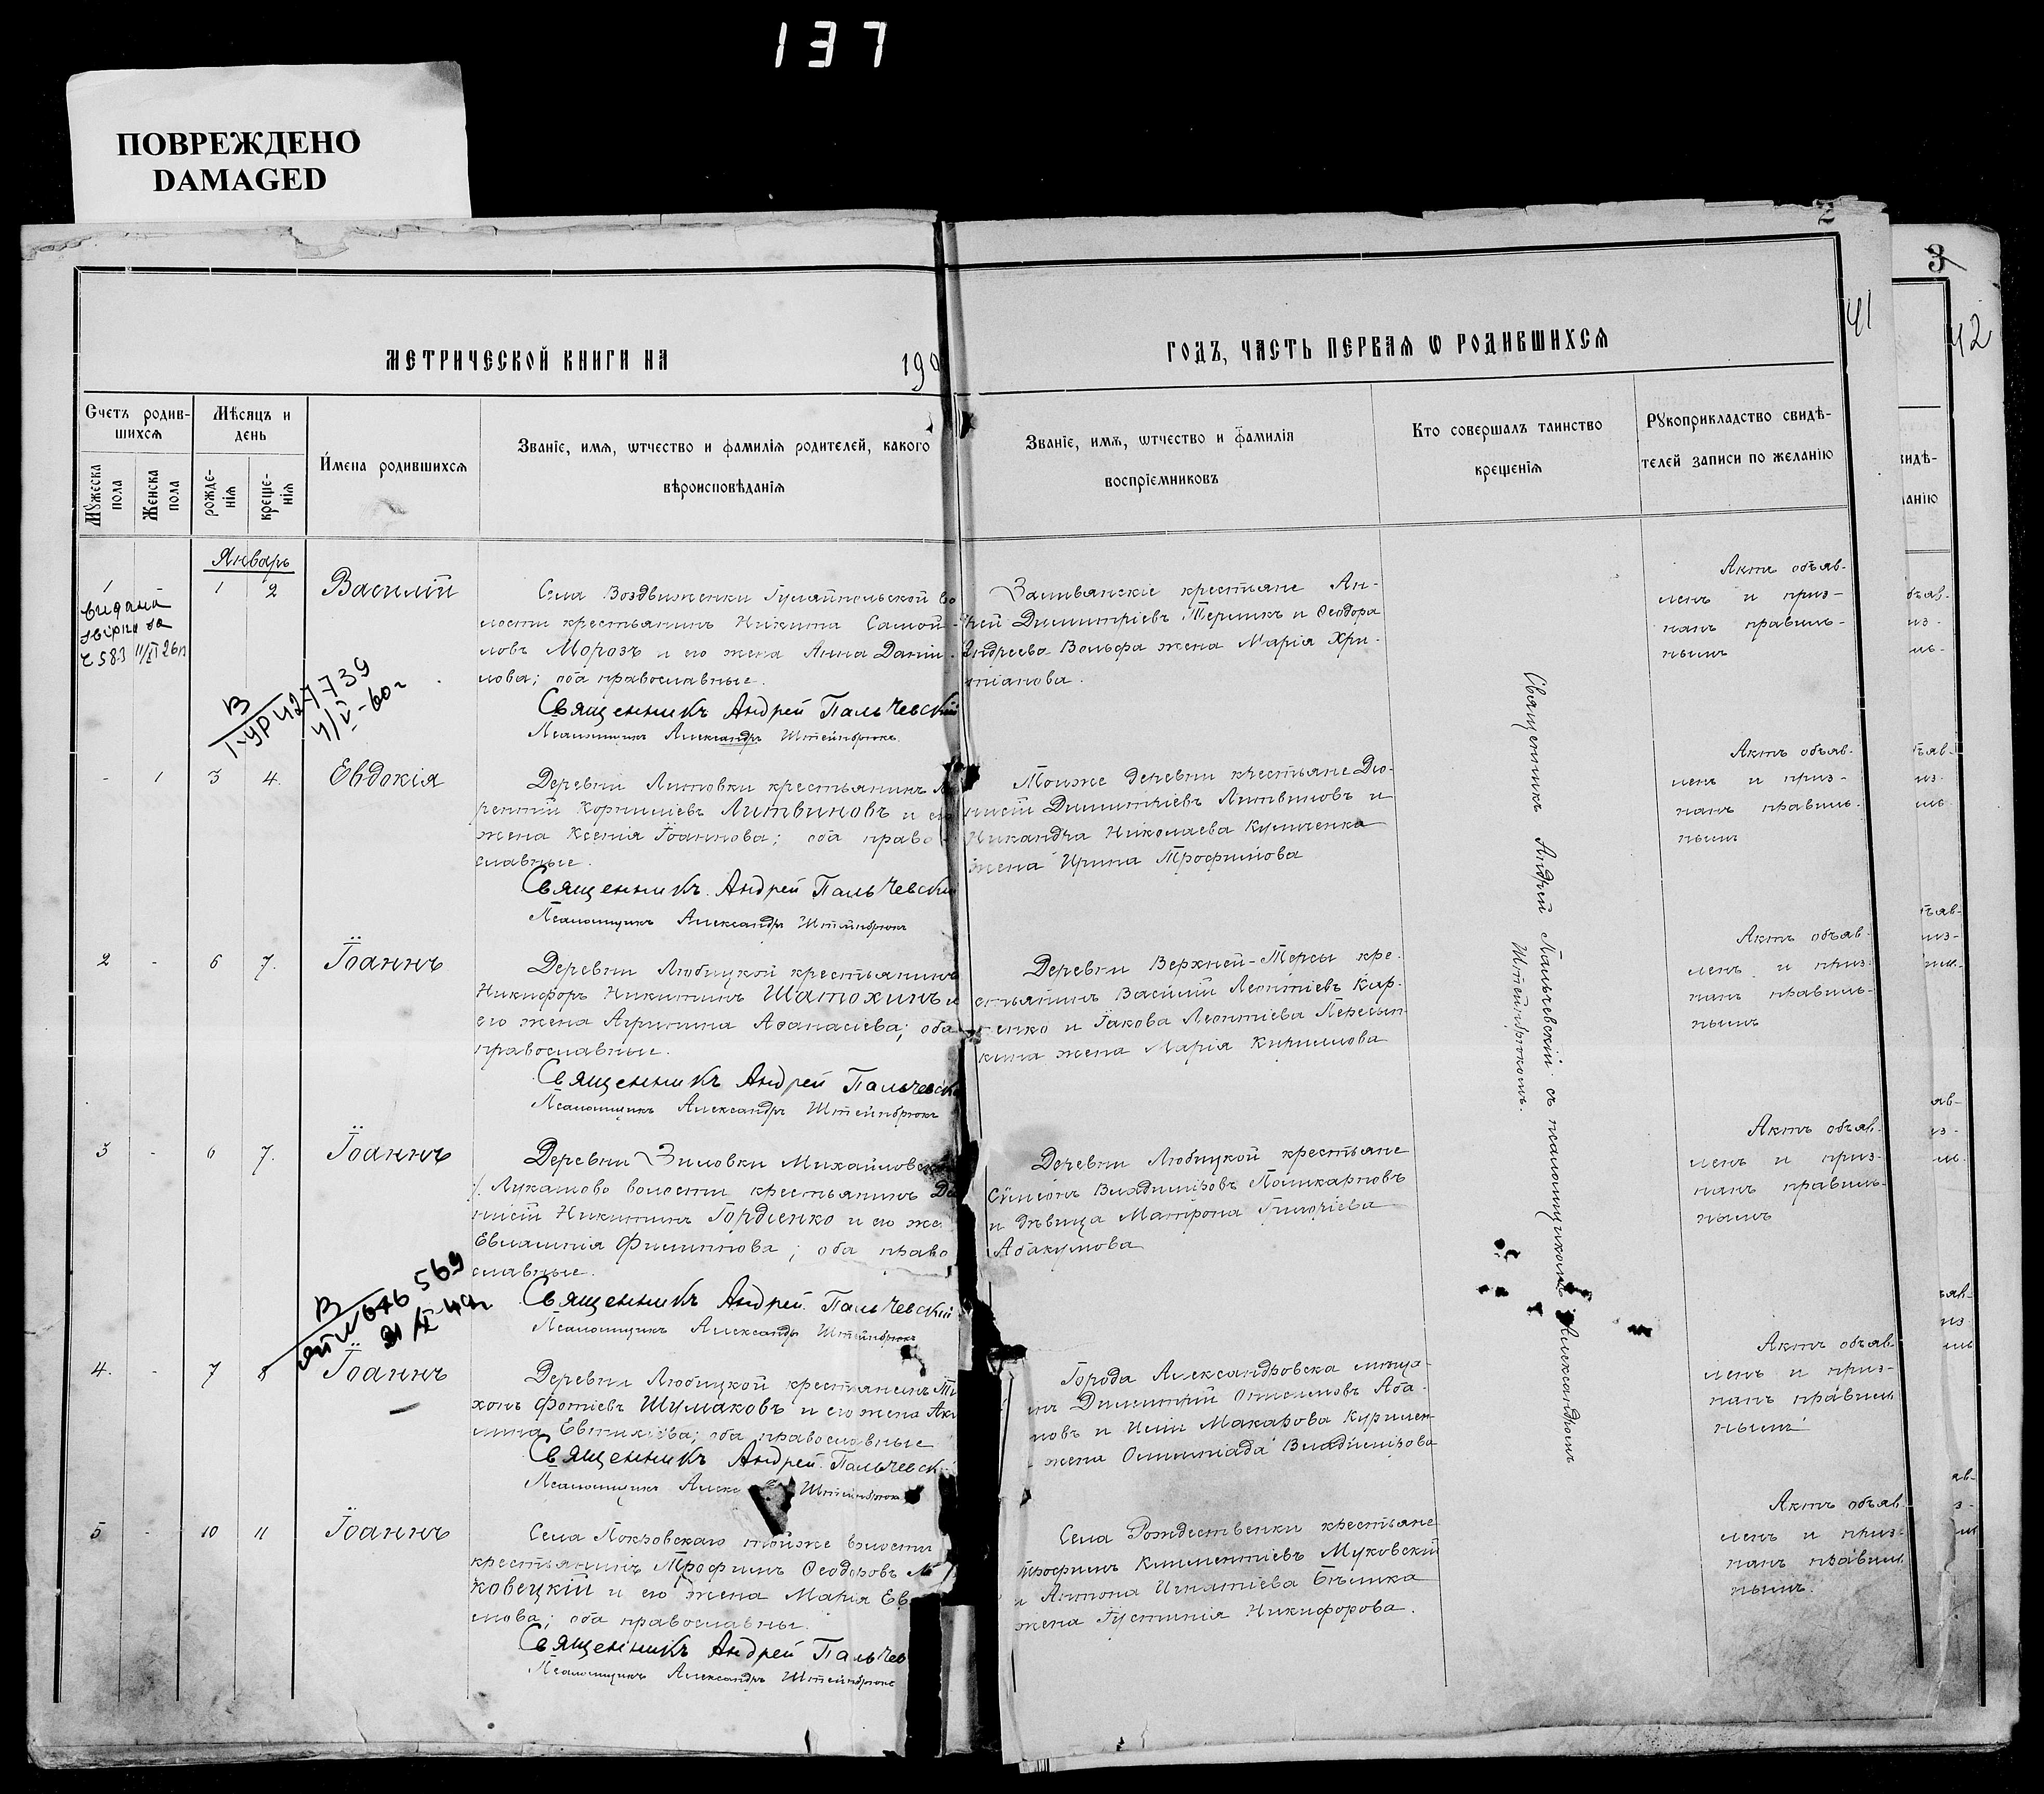 137
ПОВРЕЖДЕНО
DAMAGED
2
3
41
42
МЕТРИЧЕСКОЙ КНИГИ НА 190
ГОДЪ, ЧАСТЬ ПЕРВАЯ Ѡ РОДИВШИХСЯ
Счетъ родив-
шихся
Мужеска пола
Женска пола
Мѣсяцъ и
день
рожде-
нія
креще-
нія
Имена родившихся
Званіе, имя, ѡтчество и фамилія родителей, какого
вѣроисповѣданія
Званіе, имя, ѡтчество и фамилія
воспріемниковъ
Кто совершалъ таинство
крещенія
Рукоприкладство свидѣ-
телей записи по желанію
Январь
1 1 2 Василій
Села Воздвиженки Гуляйпольской во
лости крестьянинъ Никита Самой-
ловъ Морозъ и его жена Анна Дани-
лова; оба православные.
Священникъ Андрей Пальчевскій
Псаломщикъ Александръ Штейнбрюкъ
Заливанскіе крестьяне Ан-
рей Димитріевъ Терникъ и Ѳеодора
Андреева Вольфа жена Марія Хри-
тіанова.
Актъ объяв-
ленъ и приз-
нанъ правиль-
нымъ
- 1 3 4 Евдокія
Деревни Литовки крестьянинъ
рентій Корниліевъ Литвиновъ и его
жена Ксенія Іоаннова; оба право
славные.
Священникъ Андрей Пальчевскій
Псаломщикъ Александръ Штейнбрюкъ
Тоиже деревни крестьяне Дио-
нисій Димитріевъ Литвиновъ и
Никандра Николаева Куличенка
жена Ирина Трофимова
Актъ объяв-
ленъ и приз-
нанъ правиль-
нымъ
2 - 6 7. Іоаннъ
Деревни Любицкой крестьянинъ
Никифоръ Никитинъ Шатохинъ и
его жена Агрипина Аѳанасіева; оба
православные.
Священникъ Андрей Пальчевск
Псаломщикъ Александръ Штейнбрюкъ
Деревни Верхней-Терсы кре-
стьянинъ Василій Леонтіевъ Кар-
енко и Іакова Леонтіева
кина жена Марія Кириллова
Актъ объяв-
ленъ и приз-
нанъ правиль-
нымъ
3 - 6 7. Іоаннъ
Деревни Зиловки Михайловск
Лукашово волости крестьянинъ Діо
нисій Никитинъ Гордіенко и его же
Евлампія Филиппова; оба право
славные.
Священникъ Андрей Пальчевскій
Псаломщикъ Александръ Штейнбрюкъ
Деревни Любицкой крестьяне
Сѵмеонъ Владиміровъ Поликарповъ
и дѣвица Матрона Григоріева
Абакумова
Актъ объяв-
ленъ и приз-
нанъ правиль-
нымъ
4. - 7 8 Іоаннъ
Деревни Любицкой крестьянинъ Ти
хонъ Фотіевъ Шумаковъ и его жена Аки
лина Евтихіева; оба православные
Священникъ Андрей Пальчевск
Псаломщикъ Алекс Штейнбрюкъ
Города Александровска мѣща-
нъ Димитрій Аба-
новъ и Макарова Курилен-
жена Олимпіада Владимірова
Актъ объяв-
ленъ и приз-
нанъ правиль
нымъ
5 - 10 11 Іоаннъ
Села Покровскаго тойже волости
крестьянинъ Трофимъ Ѳеодоровъ
ковецкій и его жена Марія Ев
мова; оба православны.
Священникъ Андрей Пальчев
Псаломщикъ Александръ Штейнбрюкъ
Села Рождественки крестьяне
Трофимъ Климентіевъ Муковскій
и Антона Игнатіева Бѣлика
жена Іустинія Никифорова.
Актъ объяв-
ленъ и приз-
нанъ правил
нымъ.
Священникъ Андрей Пальчевскій съ псаломщикомъ Александромъ
Штейнбрюкомъ.